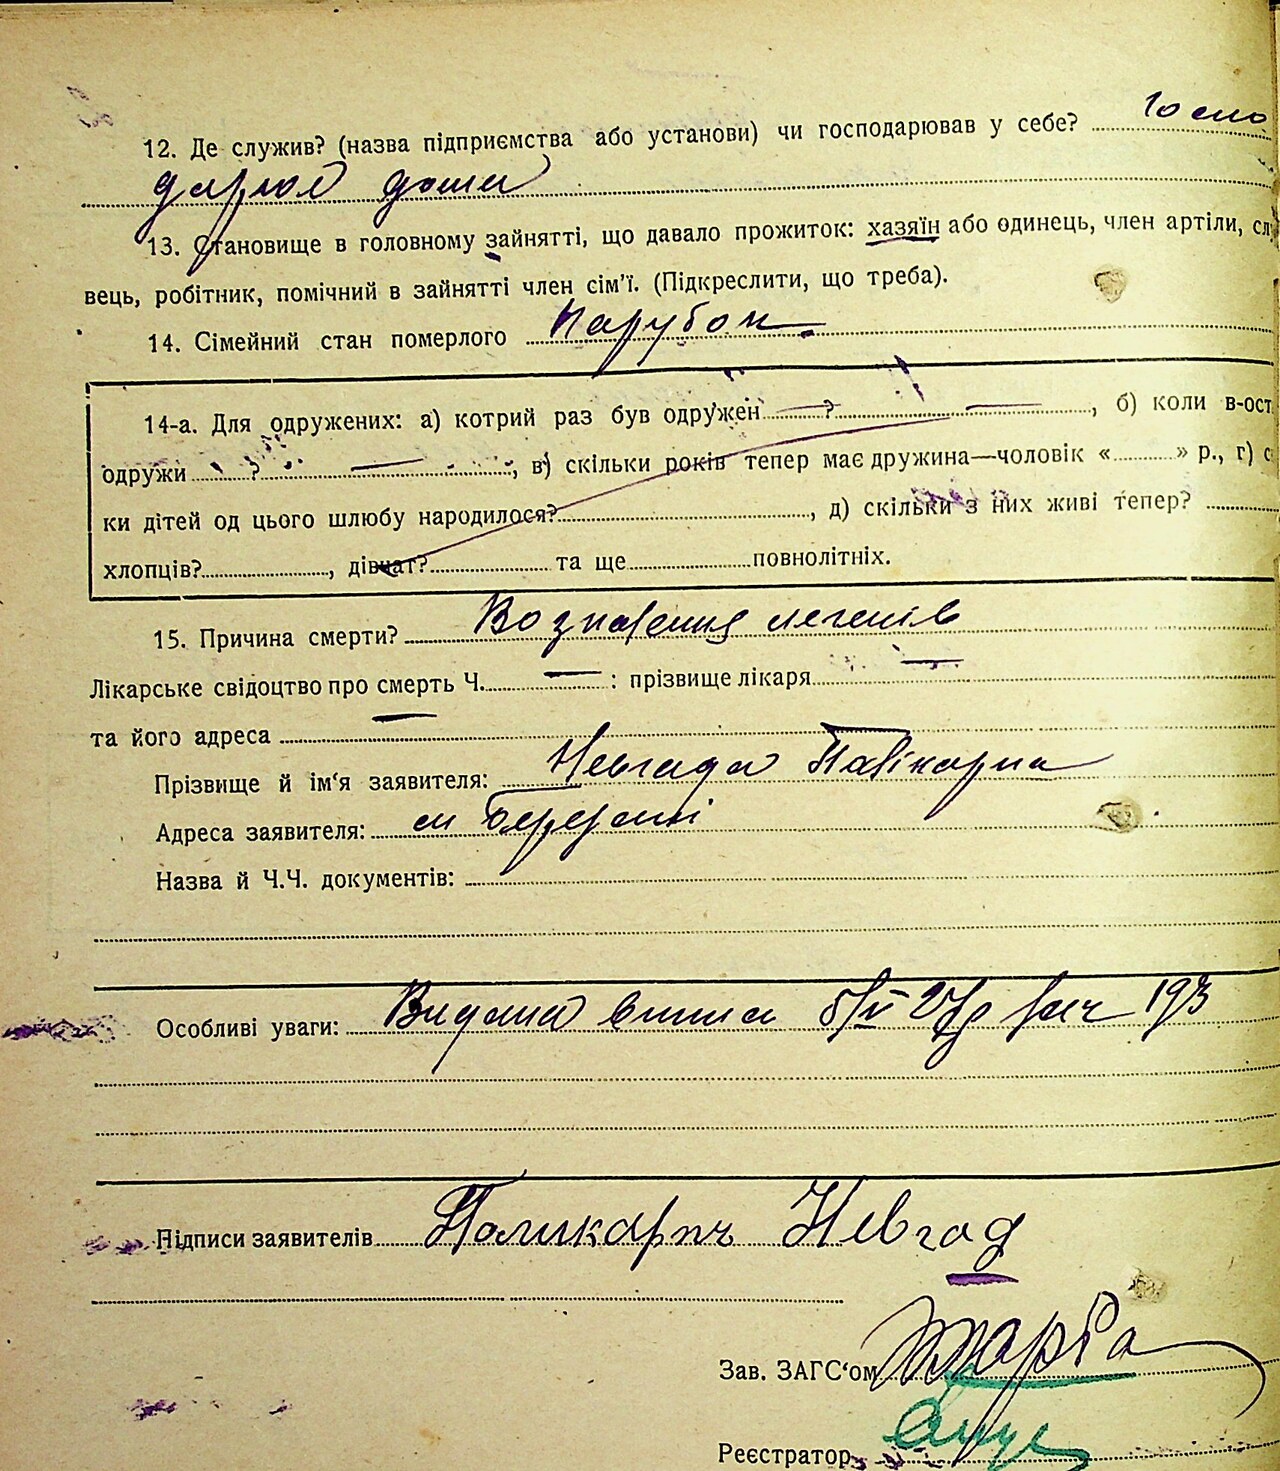 12. Де служив? (назва підприємства або установи) чи господарював у себе? Госпо
дарюв дома
13. Становище в головному зайнятті, що давало прожиток: хазяїн або одинець, член артіли, сл
вець, робітник, помічний в зайнятті член сім'ї. (Підкреслити, що треба).
14. Сімейний стан померлого Парубок
14-а. Для одружених: а) котрий раз був одружен — ? —, б) коли в-ост
одружи ? —, в) скільки років тепер має дружина—чоловік «» р., г) с
ки дітей од цього шлюбу народилося?, д) скільки з них живі тепер?
хлопців?, дівчат? та ще повнолітніх.
15. Причина смерти? легенів
Лікарське свідоцтво про смерть Ч. — : прізвище лікаря —
та його адреса —
Прізвище й ім'я заявителя: Невгада
Адреса заявителя: м
Назва й Ч.Ч. документів:
Особливі уваги: Видана 193
Підписи заявителів Поликарпъ Невгад
Зав. ЗАГС'ом
Реєстратор